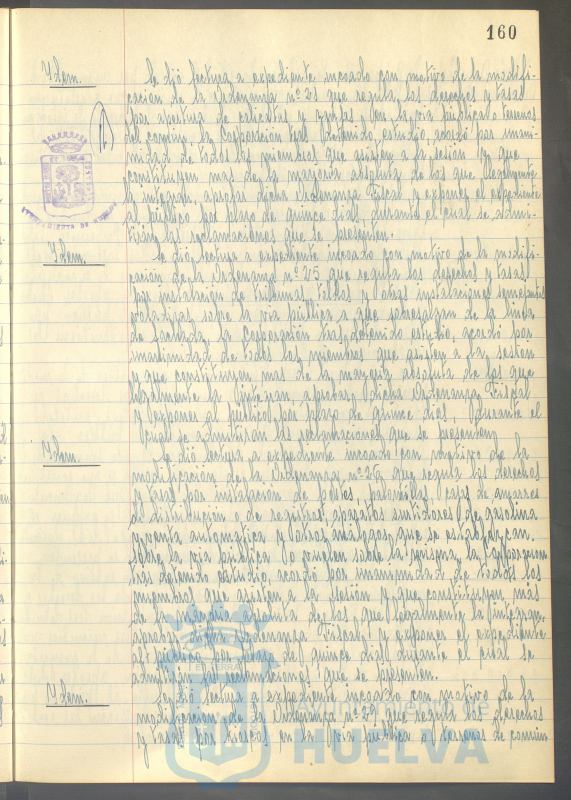 160
Idem.
Se dió lectura a expediente incoado con motivo de la modifi-
cación de la Ordenanza nº 21 que regula los derechos y tasas
por apertura de calicatas y zanjas en la vía pública o terrenos
del común, la Corporación tras detenido estudio, acordó por unani-
midad de todos los miembros que asisten a la sesión y que
constituyen mas de la mayoría absoluta de los que legalmente
la integran, aprobar dicha Ordenanza Fiscal y exponer el expediente
al público por plazo de quince días, durante el cual se admi-
tirán las reclamaciones que se presenten.
Idem.
Se dió lectura a expediente incoado con motivo de la modifi-
cación de la Ordenanza nº 25 que regula los derechos y tasas
por instalación de tribunas, toldos y otras instalaciones semejantes
voladizas sobre la vía pública o que sobresalgan de la línea
de fachada, la Corporación tras detenido estudio, acordó por
unanimidad de todos los miembros que asisten a la sesión
y que constituyen mas de la mayoría absoluta de los que
legalmente la integran, aprobar dicha Ordenanza Fiscal
y exponer al público por plazo de quince días, durante el
cual se admitirán las reclamaciones que se presenten.
Idem.
Se dió lectura a expediente incoado con motivo de la
modificación de la Ordenanza nº 26 que regula los derechos
y tasas por instalación de postes, palomillas, cajas de amarres
de distribución y de registros, aparatos surtidores de gasolina
y venta automática y otros análogos, que se establezcan
sobre la vía pública o vuelen sobre la misma, la Corporación
tras detenido estudio, acordó por unanimidad de todos los
miembros que asisten a la sesión y que constituyen mas
de la mayoría absoluta de los que legalmente la integran,
aprobar dicha Ordenanza Fiscal y exponer el expediente
al público por plazo de quince días durante el cual se
admitirán reclamaciones que se presenten.
Idem.
Se dió lectura a expediente incoado con motivo de la
modificación de la Ordenanza nº 27 que regula los derechos
y tasas por kioscos en la vía pública o terrenos de común
AYUNTAMIENTO DE HUELVA
Ayuntamiento de
HUELVA